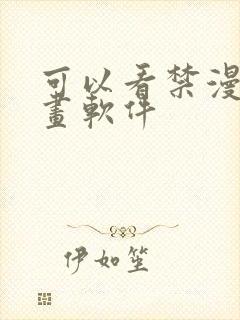 可以看禁漫
畫軟件
伊如笙